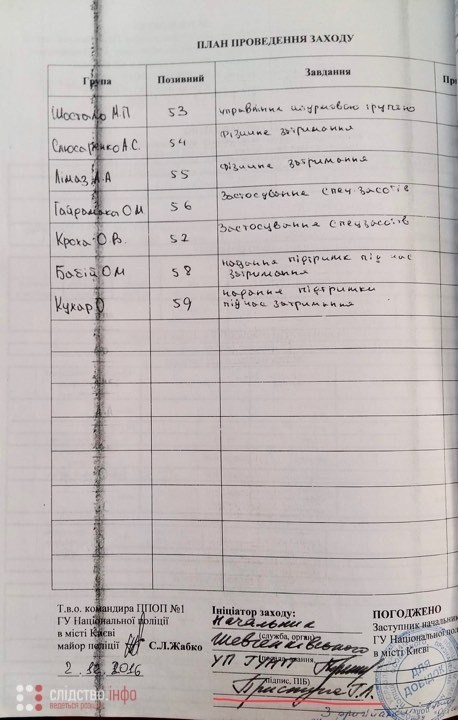 ПЛАН ПРОВЕДЕННЯ ЗАХОДУ
Група Позивний Завдання
Шостало М П 53 управління штурмовою групою
Слюсаренко А.С. 54 Фізичне затримання
Лімаз А.А 55 Фізичне затримання
О М 56 Застосування спецзасобів
Кроха О.В. 52 Застосування спецзасобів
Бабій О М 58 надання підтримк під час
затримання
Кухар О 59 надання підтримки
під час затримання
Т.в.о. командира ППОП №1
ГУ Національної поліції
в місті Києві
майор поліції С.Л.Жабко
2.12.2016
Ініціатор заходу:
начальник
(служба, орган)
Шевченківського
УП ГУНП
підпис, ПІБ)
Приступа Г.Л.
ПОГОДЖЕНО
Заступник начальник
ГУ Національної пол
в місті Києві
ДЛЯ
ДОВІДОК
слідство.інфо
ведеться розслід